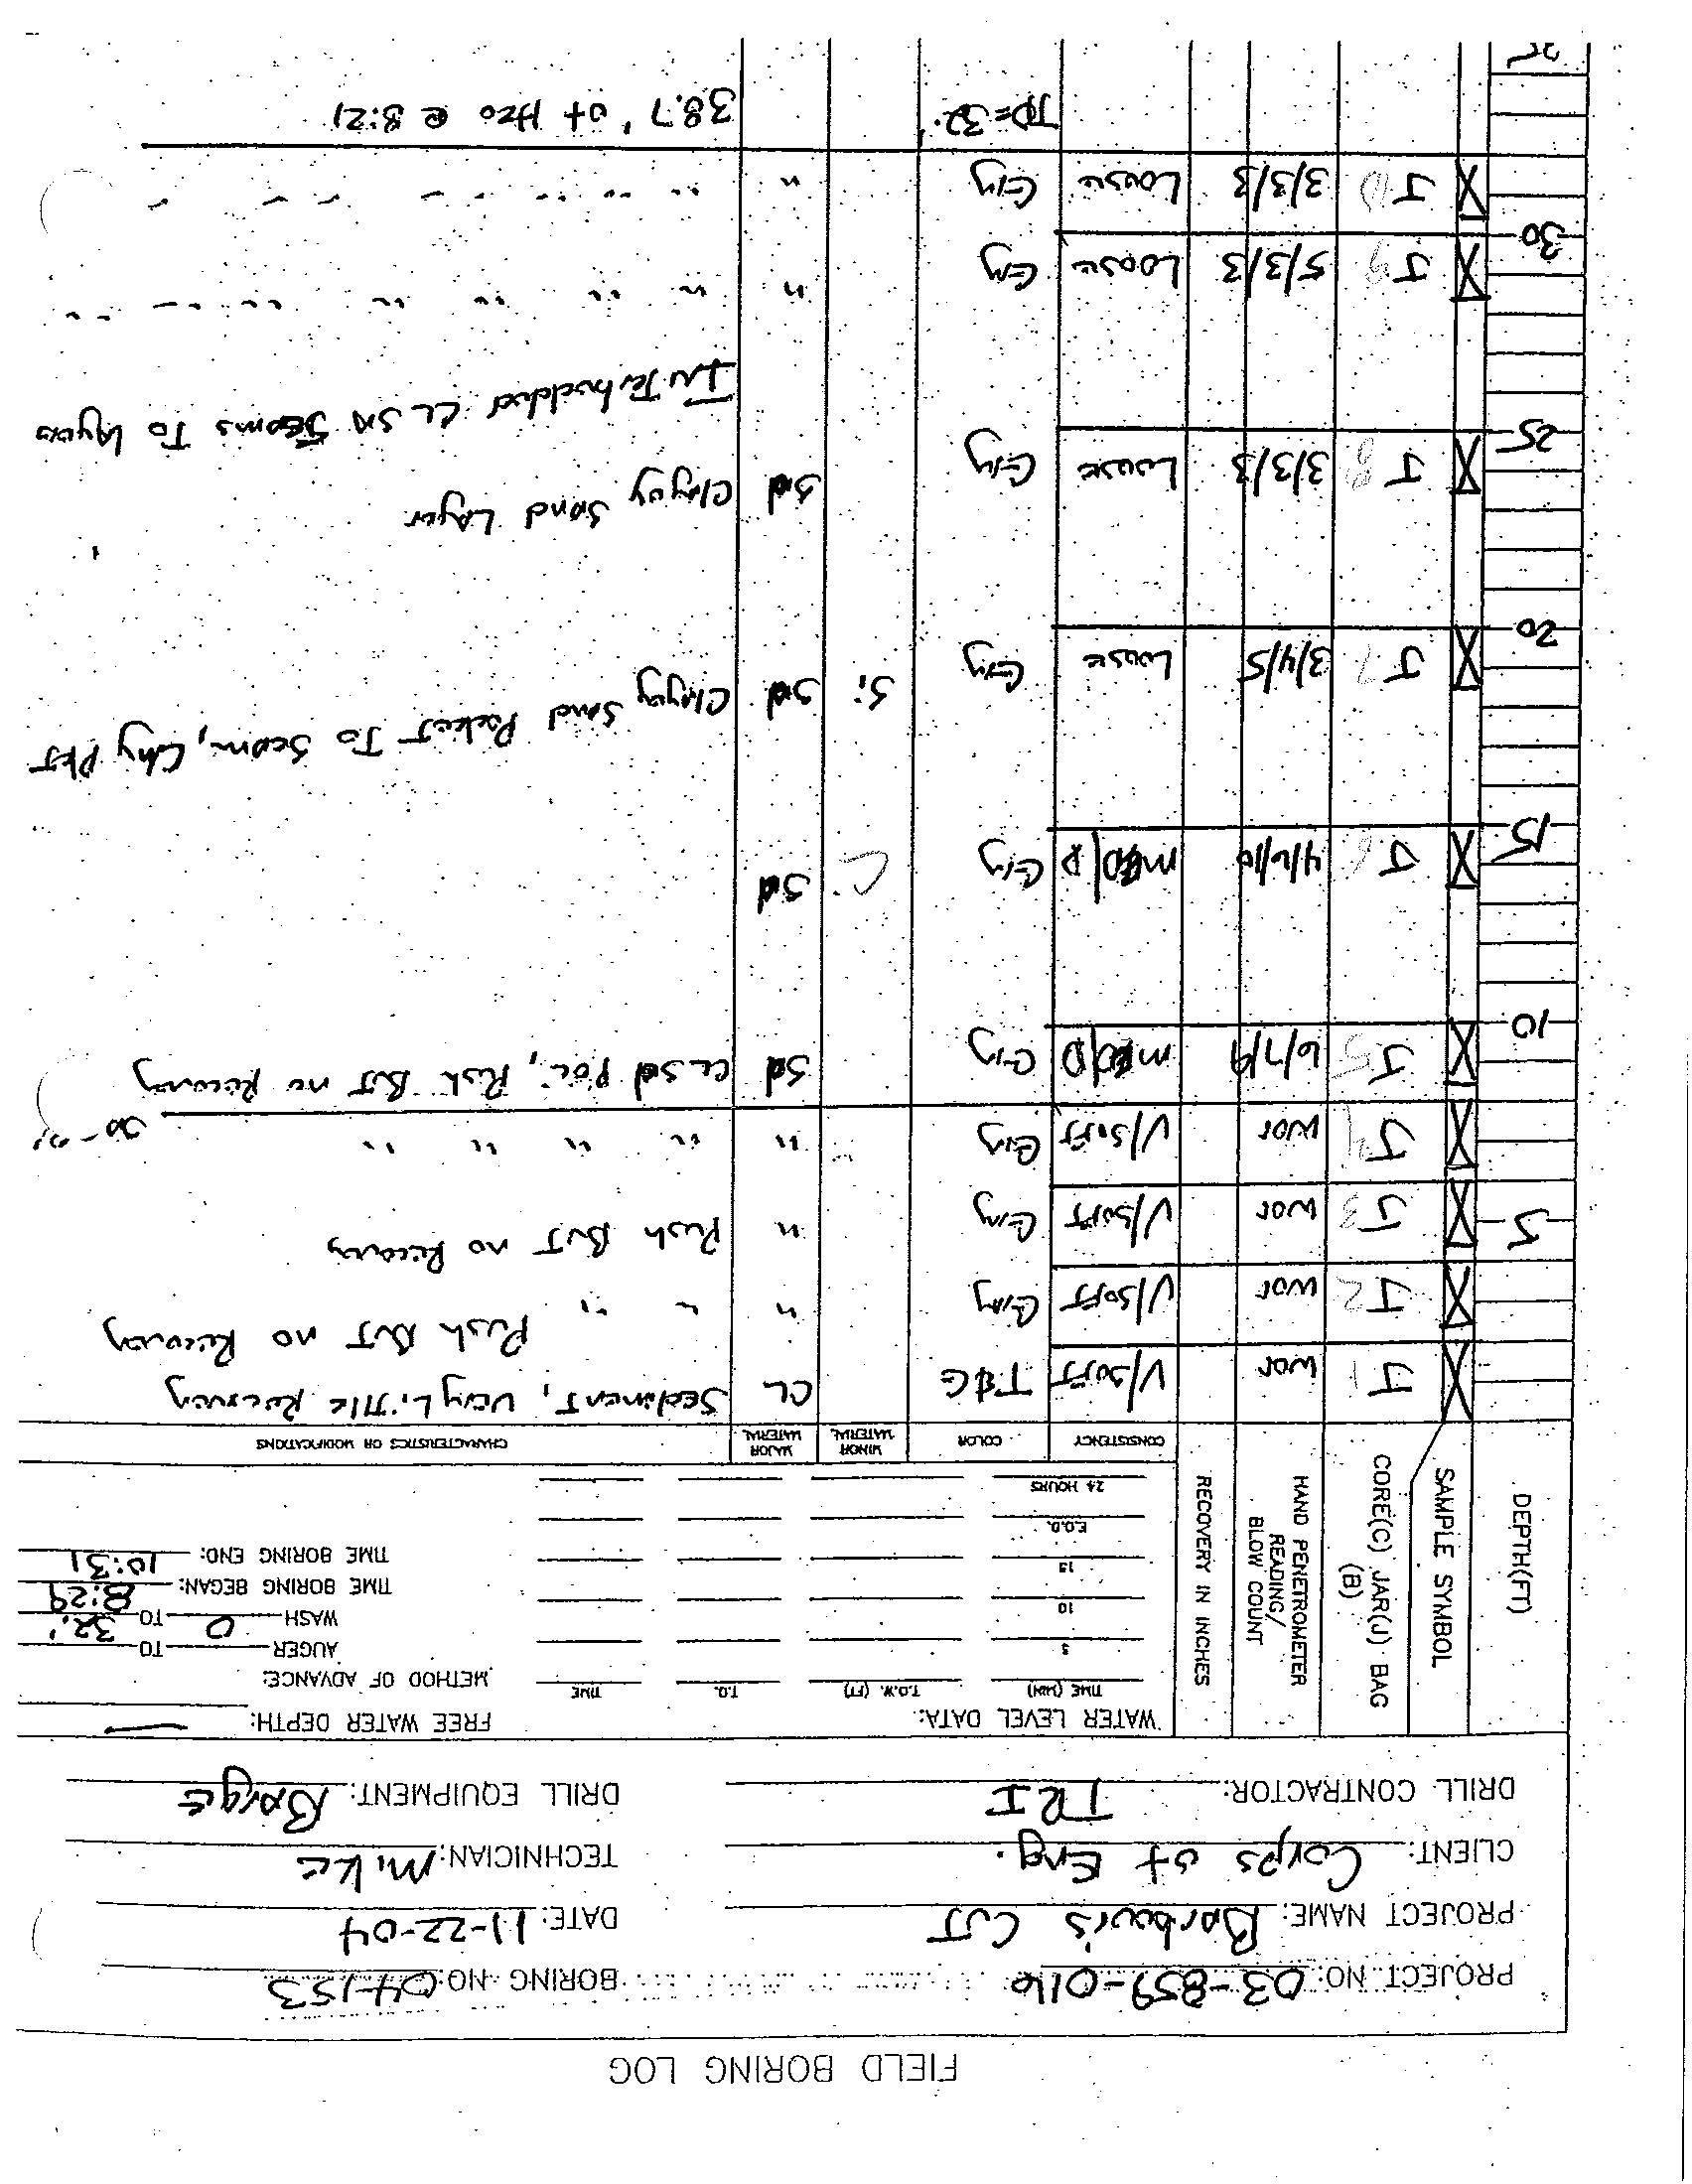 FIELD BORING LOG
PROJECT NO: 03-859-016 BORING NO: 04-153
PROJECT NAME: Barbour's CUT DATE: 11-22-04
CLIENT: Corps of Eng. TECHNICIAN: Mike
DRILL CONTRACTOR: TRI DRILL EQUIPMENT: Barge
DEPTH(FT)
SAMPLE SYMBOL
CORE(C) JAR(J) BAG (B)
HAND PENETROMETER READING/ BLOW COUNT
RECOVERY IN INCHES
WATER LEVEL DATA: FREE WATER DEPTH: —
TIME (MIN) T.O.W. (FT) T.O. TIME METHOD OF ADVANCE:
5 AUGER TO
10 WASH 0 TO 32'
15 TIME BORING BEGAN: 8:29
E.O.D. TIME BORING END: 10:31
24 HOURS
CONSISTENCY COLOR MINOR MATERIAL MAJOR MATERIAL CHARACTERISTICS OR MODIFICATIONS
J 1 WOR V/SOFT T&G CL Sediment, Very Little Recovery
J 2 WOR V/SOFT Gray " " " Push BUT no Recovery
5 J 3 WOR V/SOFT Gry " Push BUT no Recovery
J 4 WOR V/SOFT Gry " " " " "
J 5 6/7/9 MED/D Gry Sd CL Sd Poc, Push BUT no Recovery
10
J 6 4/6/10 MED/D Gry Sd
15
J 7 3/4/5 Loose Gry Si Sd Clayey Sand Pocket To Seam, Clay PKT
20
J 8 3/3/3 Loose Gry Sd Clayey Sand Layer
25 InTerbedded CL SD Seams To Layers
J 9 5/3/3 Loose Gry " " " " " " "
30
J 10 3/3/3 Loose Gry " " " " " "
TD=32' 38.7' of H2O @ 8:21
35